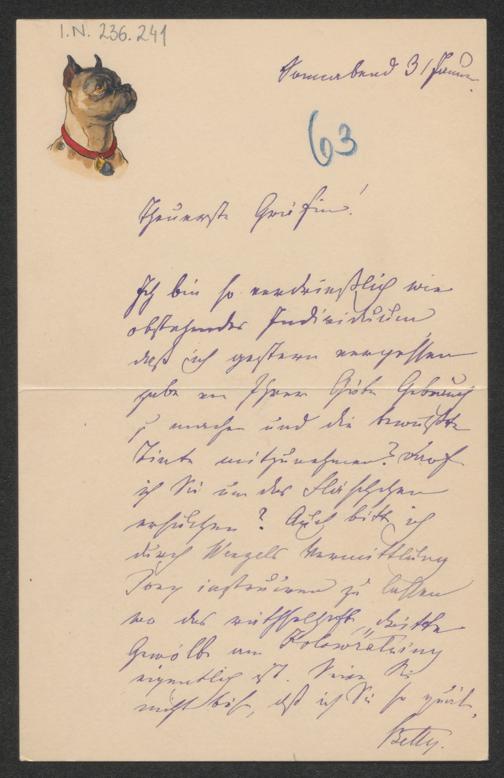 I.N. 236.241
Sonnabend 31 Januar.
63
Theuerste Gräfin!
Ich bin so verdrießlich wie
obstehendes Individuum
daß ich gestern vergessen
habe von Ihrer Güte Gebrauch
zu machen und die bewußte
Tinte mitzunehmen. Darf
ich Sie um das Fläschchen
ersuchen? Auch bitte ich
durch Vermittlung
instruiren zu lassen
wo das räthselhafte dritte
Gewölbe am Kolowratring
eigentlich ist. Seien Sie
nicht bös, daß ich Sie so quäle.
Betty.